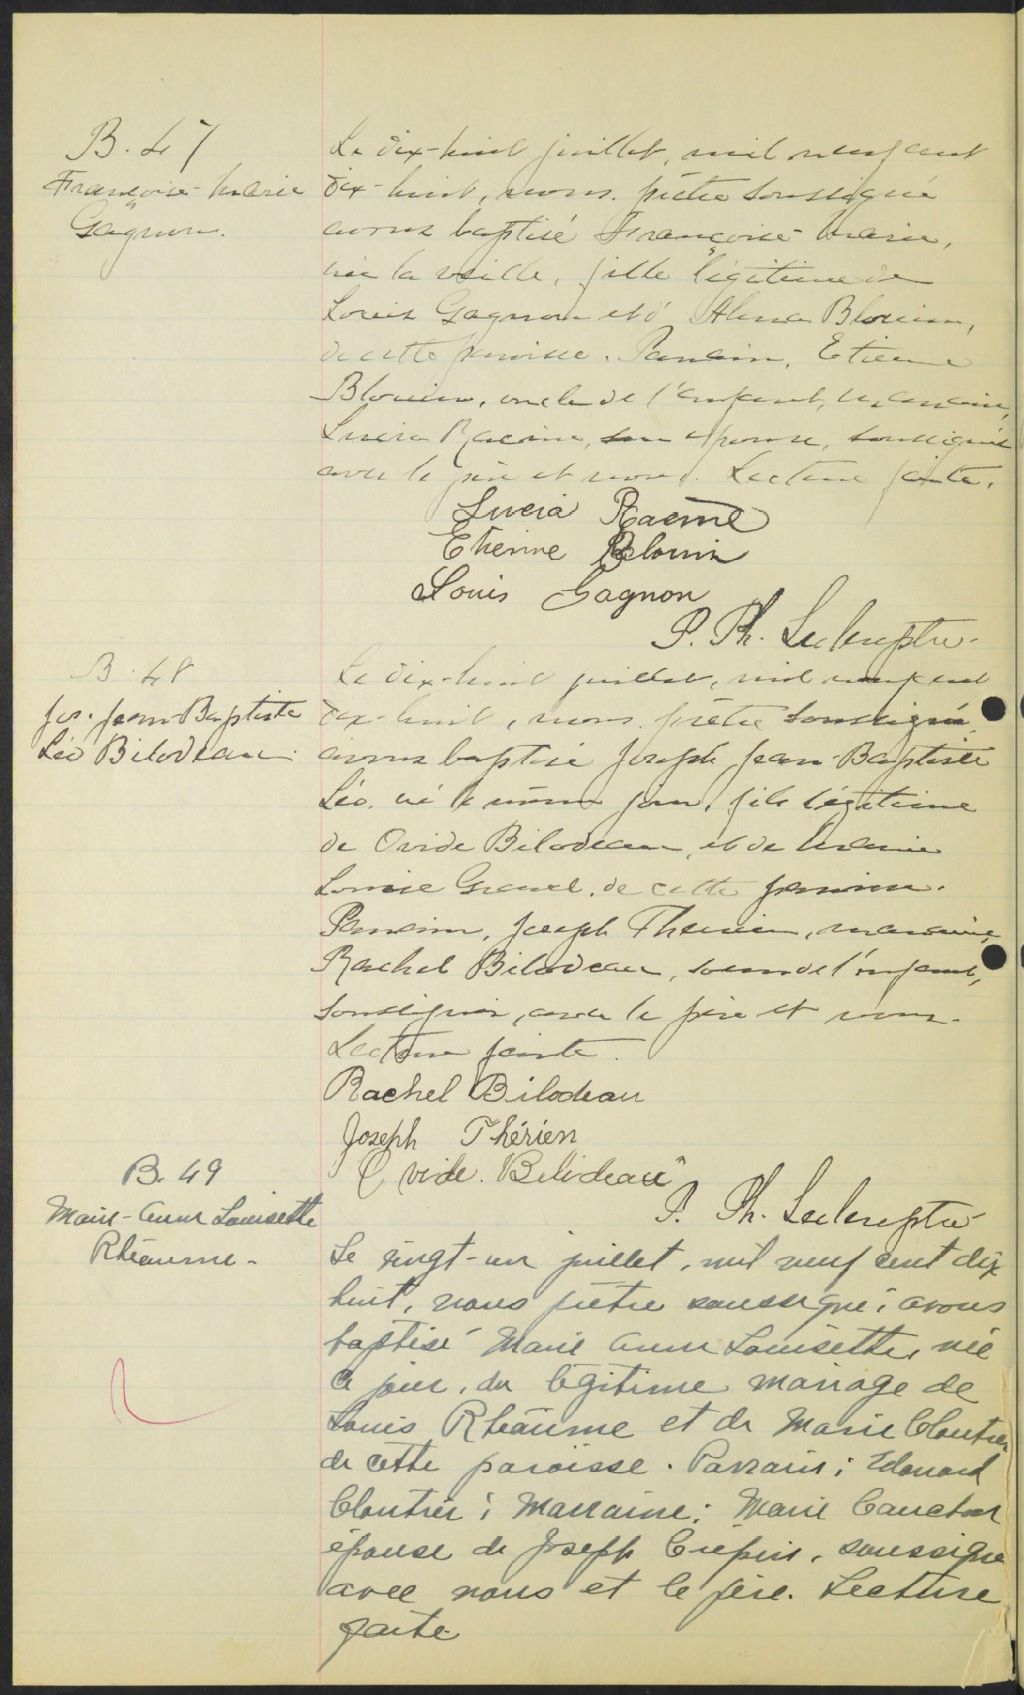 B. 47
Françoise-Marie
Gagnon.
Le dix-huit juillet, mil neuf cent
dix-huit, nous, prêtre soussigné
avons baptisé Françoise-Marie,
née la veille, fille légitime de
Louis Gagnon et d' Alma Blouin,
de cette paroisse. Parrain, Etienne
Blouin, oncle de l'enfant, marraine,
Lucia Racine, son épouse, soussignés
avec le père et nous. Lecture faite.
Lucia Racine
Etienne Blouin
Louis Gagnon
P. Ph.
B. 48
Jos. Jean-Baptiste
Léo Bilodeau
Le dix-huit juillet, mil neuf cent
dix-huit, nous, prêtre soussigné,
avons baptisé Joseph Jean-Baptiste
Léo, né le même jour, fils légitime
de Ovide Bilodeau, et de Marie
Louise Gravel, de cette paroisse.
Parrain, Joseph Therien, marraine,
Rachel Bilodeau, soeur de l'enfant,
soussignés, avec le père et nous.
Lecture faite.
Rachel Bilodeau
Joseph Thérien
Ovide Bilodeau
P. Ph.
B. 49
Marie-Anna Louisette
Rhéaume-
Le vingt-un juillet, mil neuf cent dix
huit, nous prêtre soussigné, avons
baptisé Marie Anna Louisette, née
ce jour, du légitime mariage de
Louis Rhéaume et de Marie Cloutier
de cette paroisse. Parrain; Edouard
Cloutier; Marraine: Marie Cauchon
épouse de Joseph Crépin, soussigné
avec nous et le père. Lecture
faite.